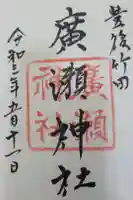 豊後竹田
廣瀬神社
廣瀬神社
令和三年五月十一日